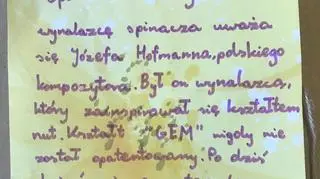 wynalazcę spinacza uważa
się Józefa Hofmanna, polskiego
kompozytora. Był on wynalazcą,
który zainspirował się kształtem
nut. Kształt "GEM" nigdy nie
został opatentowany. Po dziś